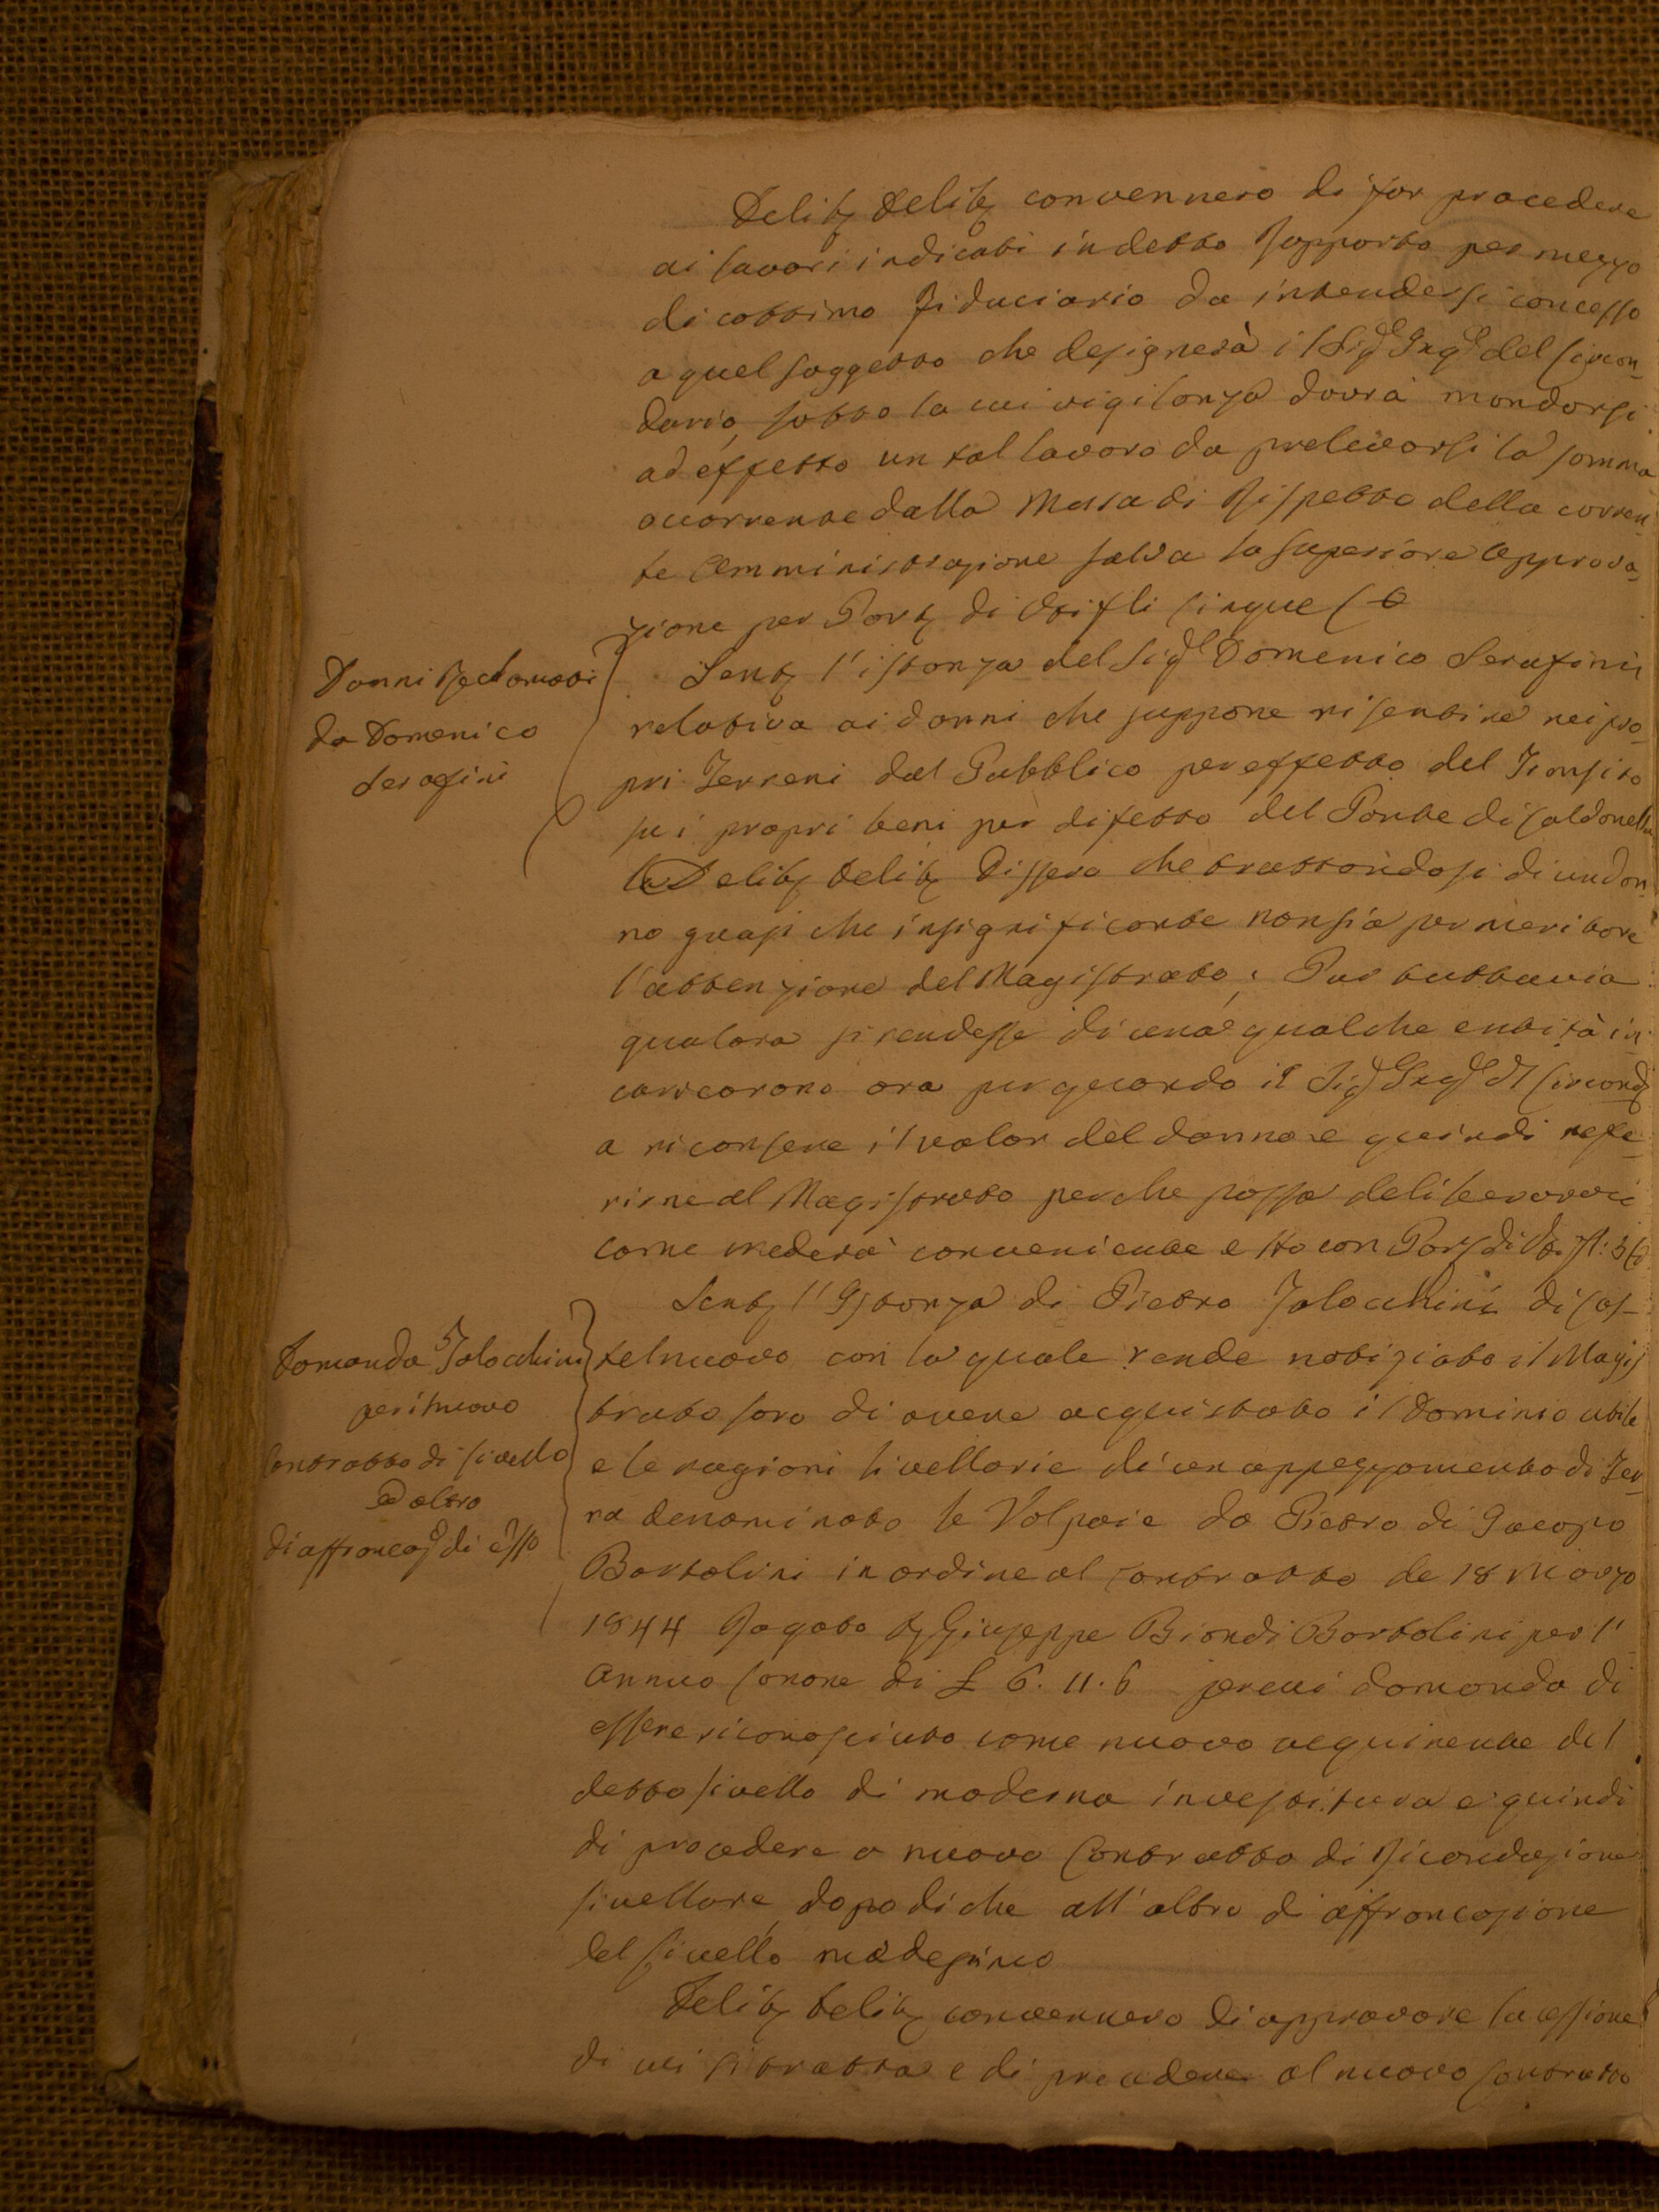 Delibʒ Delibʒ convennero di far procedere
ai lavori indicati in detto Rapporto per mezzo
di cottimo fiduciario da intendersi concesso
a quel soggetto che designerà il Sigʳᵉ Ingʳᵉ del Circon-
dario, sotto la cui vigilanza dovrà mandarsi
ad effetto un tal lavoro da prelevarsi la somma
occorrente dalla Massa di Rispetto della corren-
te Amministrazione salva la superiore approva-
zione per Partʒ di Voti fli cinque C 0
Danni Reclamati
da Domenico
Serafini
Sentʒ l'istanza del Sigʳ Domenico Serafini
relativa ai danni che suppone risentire nei pro-
pri Terreni dal Pubblico per effetto del Transito
sui propri beni per difetto del Ponte di Caldanella
Delibʒ Delibʒ Dissero che trattandosi di un dan-
no quasi che insignificante non sia per meritare
l'attenzione del Magistrato; Pur tuttavia
qualora si rendesse di una qualche entità in-
caricarono ora per quando il Sigʳᵉ Ingʳᵉ dl Circondʒ
a riconscere il valor del danno e quindi refe-
rirne al Magistrato perche possa deliberarvi
come crederà conveniente e tto con Partʒ di Vti fl: 5 C 0
Domanda Talocchini
per il nuovo
Contratto di livello
ed altro
di affrancazʳᵉ di esso
Sentʒ l'Istanza di Pietro Talocchini di Cas-
telnuovo con la quale rende notiziato il Magis
trato loro di avere acquistato il dominio utile
e le ragioni livellarie di un appezzamento di Ter-
ra denominato le Volpaie da Pietro di Jacopo
Bartolini in ordine al contratto de 18 Marzo
1844 Rogato Giuseppe Biondi Bartolini per l'
Annuo Canone di £ 6. 11. 6 per cui domanda di
essere riconosciuto come nuovo acquirente del
detto livello di moderna investitura e quindi
di procedere a nuovo Contratto di Ricondazione
livellare, dopo di che all'altro di affrancazione
del livello medesimo
Delibʒ Delibʒ convennero di approvare la cessione
di cui si tratta e di procedere al nuovo Contratto